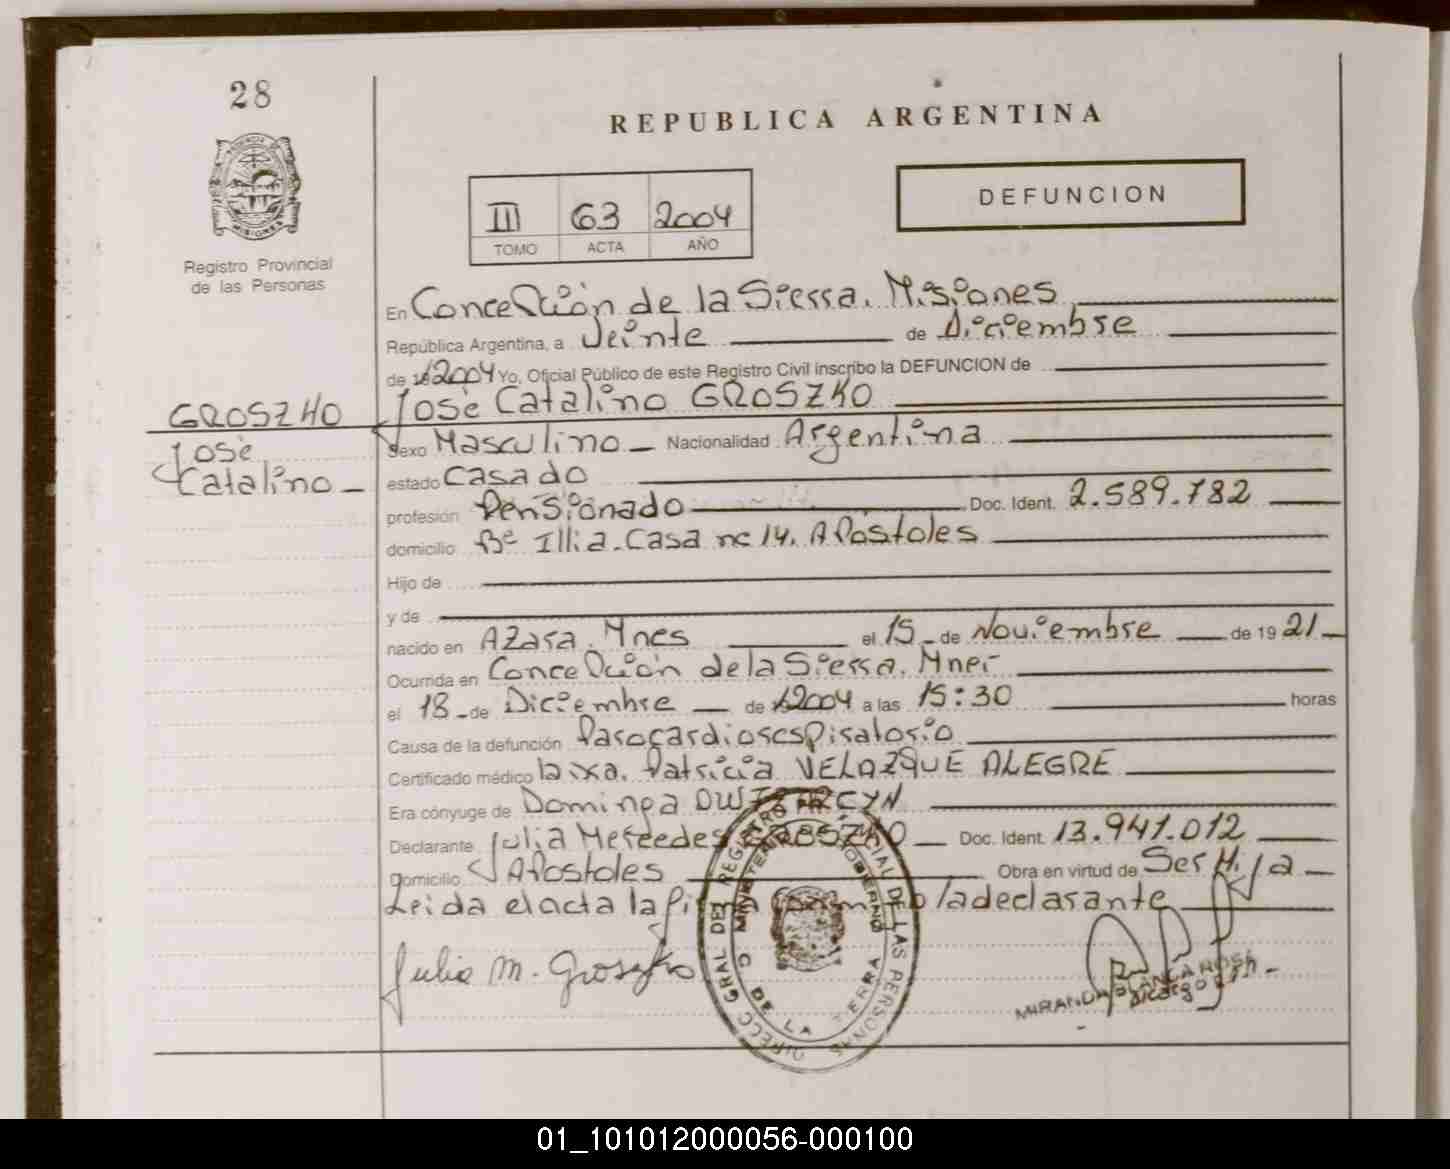 28
REPUBLICA ARGENTINA
DEFUNCION
III 63 2004
TOMO ACTA AÑO
MISIONES
Registro Provincial
de las Personas
En Concepción de la Sierra. Misiones
República Argentina, a Veinte de Diciembre
de 2004 Yo, Oficial Público de este Registro Civil inscribo la DEFUNCION de
GROSZKO José Catalino GROSZKO
José
Catalino
Sexo Masculino Nacionalidad Argentina
estado Casado
profesión Pensionado Doc. Ident. 2.589.782
domicilio Bº Illia. Casa nº 14. Apostoles
Hijo de
y de
nacido en Azara. Mnes el 15 de Noviembre de 1921
Ocurrida en Concepción de la Sierra. Mnes
el 18 de Diciembre de 2004 a las 15:30 horas
Causa de la defunción Parocardiorespiratorio
Certificado médico la dra. Patricia VELAZQUE ALEGRE
Era cónyuge de Dominga
Declarante Julia Mercedes GROSZKO Doc. Ident. 13.941.012
Domicilio Apostoles Obra en virtud de Ser Hija
Leida el acta la firma la declarante
Julia M. Groszko
MIRANDA BLANCA ROSA
DIRECC GRAL DEL REGISTRO PROVINCIAL DE LAS PERSONAS
MINISTERIO GOBIERNO
C DE LA SIERRA
01_101012000056-000100